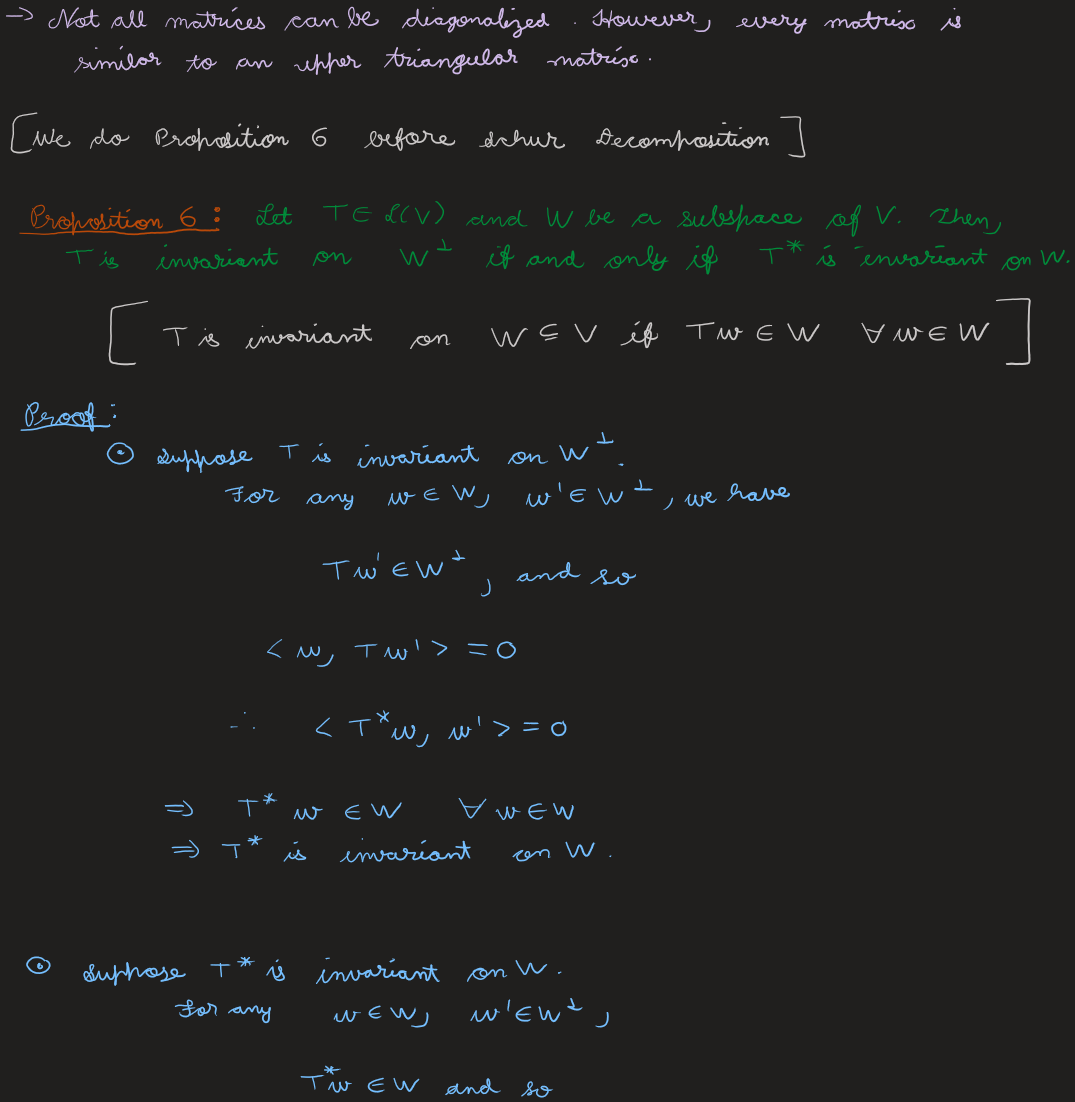 → Not all matrices can be diagonalized. However, every matrix is
similar to an upper triangular matrix.
[We do Proposition 6 before Schur Decomposition]
Proposition 6: Let T ∈ L(V) and W be a subspace of V. Then,
T is invariant on W⊥ if and only if T* is invariant on W.
[T is invariant on W ⊆ V if Tw ∈ W ∀ w ∈ W]
Proof:
⊙ Suppose T is invariant on W⊥.
For any w ∈ W, w' ∈ W⊥, we have
Tw' ∈ W⊥, and so
< w, Tw' > = 0
∴ < T*w, w' > = 0
⇒ T* w ∈ W ∀ w ∈ W
⇒ T* is invariant on W.
⊙ Suppose T* is invariant on W.
For any w ∈ W, w' ∈ W⊥,
T*w ∈ W and so